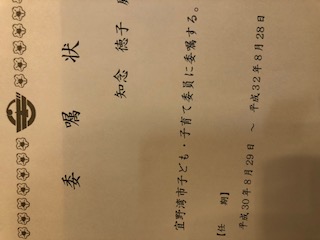 委嘱状
知念 徳子
宜野湾市子ども・子育て委員に委嘱する。
【任 期】
平成30年8月29日 ～ 平成32年8月28日